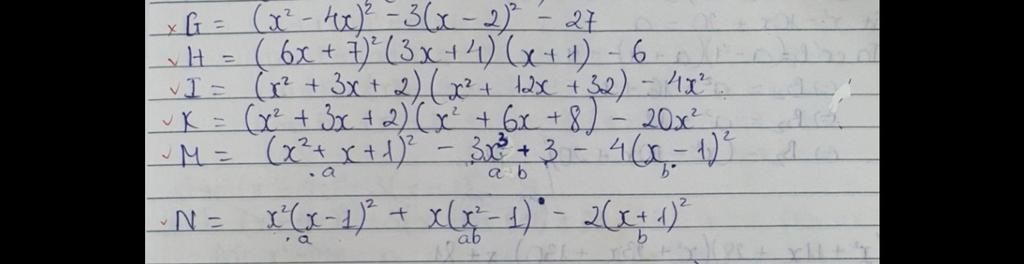 × G = (x² - 4x)² - 3(x - 2)² - 27
✓ H = (6x + 7)²(3x + 4)(x + 1) - 6
✓ I = (x² + 3x + 2)(x² + 12x + 32) - 4x²
✓ K = (x² + 3x + 2)(x² + 6x + 8) - 20x²
✓ M = (x² + x + 1)² - 3x³ + 3 - 4(x - 1)²
a a b b
✓ N = x²(x - 1)² + x(x² - 1) - 2(x + 1)²
a ab b